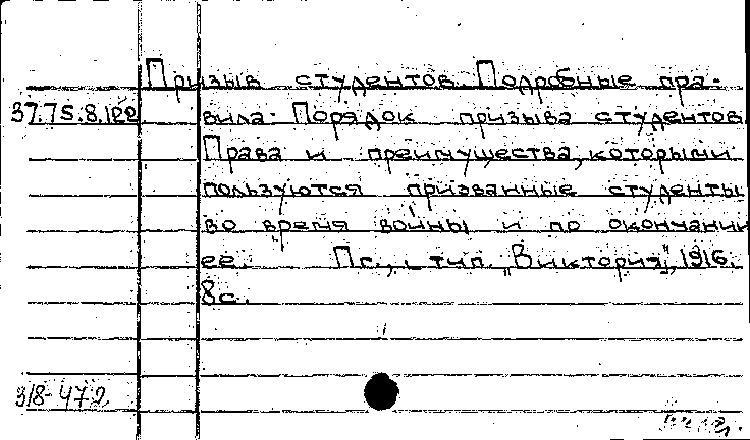 Призыв студентов. Подробные пра-
37.75.8.122 вила. Порядок призыва студентов
Права и преимущества, которыми
пользуются призванные студенты
во время войны и по окончании
ее. Пг., тип. "Виктория", 1916.
8с.
318-472